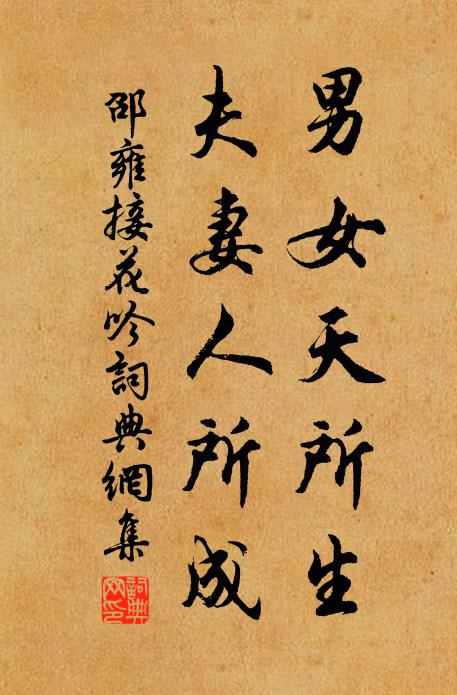 男女天所生
夫妻人所成
邵雍接花吟詞典網集
詞典網印